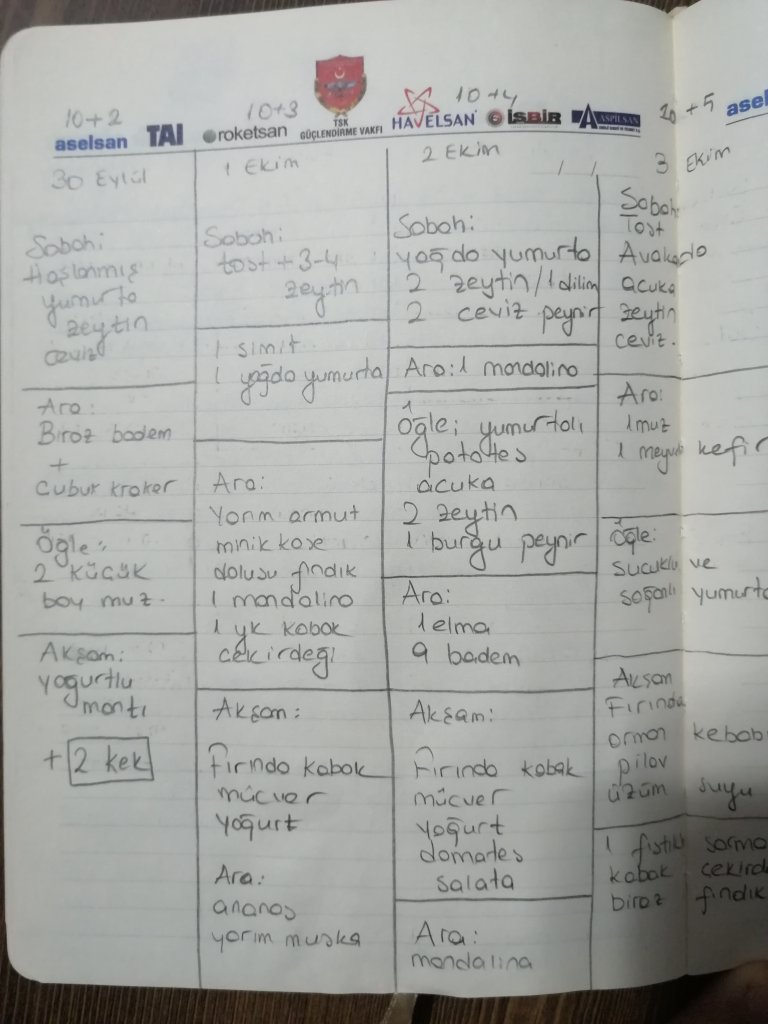 10+2
10+3
10+4
10+5
aselsan
TAI
roketsan
TSK
GÜÇLENDİRME VAKFI
HAVELSAN
İŞBİR
ASPİLSAN
asel
30 Eylül
Sabah:
Haşlanmış
yumurta
zeytin
ceviz
Ara:
Biraz badem
+
Çubuk kraker
Öğle:
2 küçük
boy muz.
Akşam:
yogurtlu
mantı
+ 2 kek
1 Ekim
Sabah:
tost + 3-4
zeytin
1 simit
1 yağda yumurta
Ara:
Yarım armut
minik kase
dolusu fındık
1 mandalina
1 yk kabak
çekirdeği
Akşam:
Fırında kabak
mücver
yoğurt
Ara:
ananas
yarım muska
2 Ekim
Sabah:
yağda yumurta
2 zeytin/1 dilim
2 ceviz peynir
Ara: 1 mandalina
Öğle; yumurtalı
patates
acuka
2 zeytin
1 burgu peynir
Ara:
1 elma
9 badem
Akşam:
Fırında kabak
mücver
yoğurt
domates
salata
Ara:
mandalina
3 Ekim
Sabah:
Tost
Avakado
acuka
zeytin
ceviz.
Ara:
1 muz
1 meyveli kefir
Öğle:
sucuklu ve
soğanlı yumurta
Akşam
Fırında
orman kebabı
pilav
üzüm suyu
1 fıstıklı sarma
kabak çekird
biraz fındık